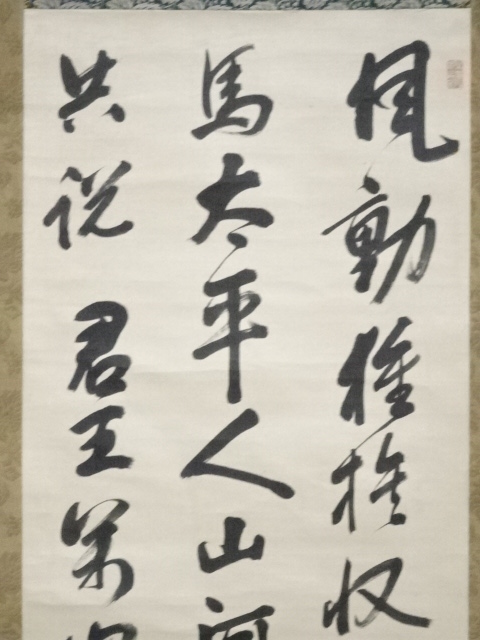 風動收
馬太平人山河
共說君王